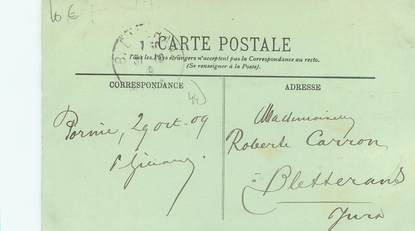 10 €
CARTE POSTALE
Tous les Pays étrangers n'acceptent pas la Correspondance au recto.
(Se renseigner à la Poste).
CORRESPONDANCE
ADRESSE
Pornic, 29 oct. 09
Mademoiselle
Roberte Carron
à Bletterans
Jura